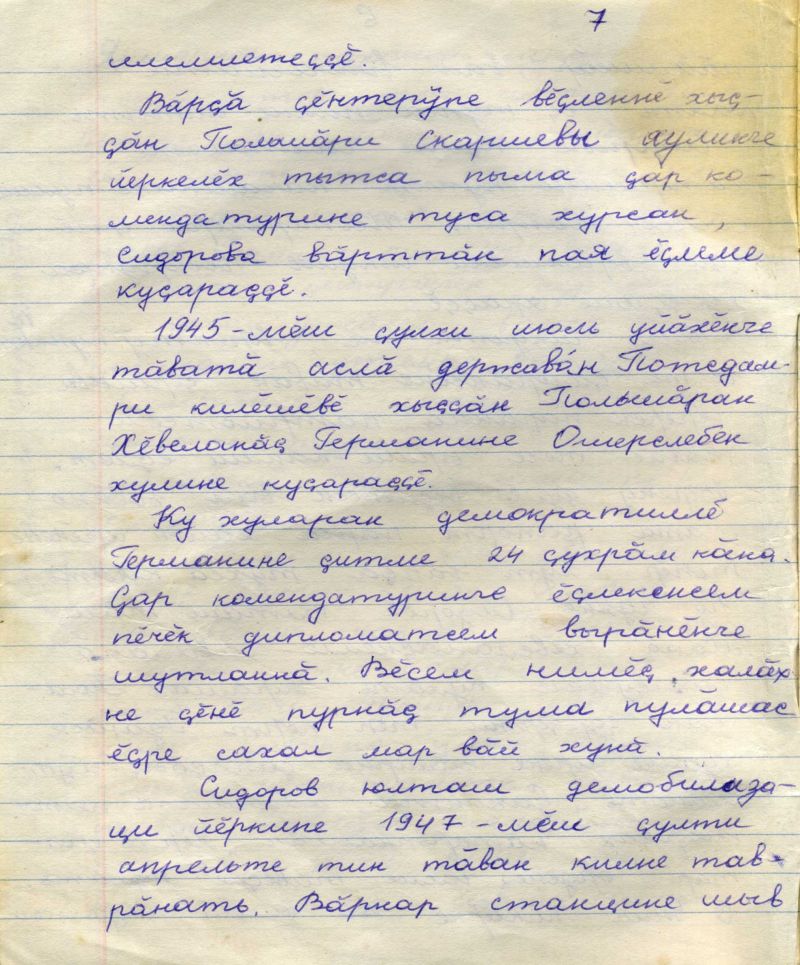 7
илемлетеҫҫӗ.
Вӑрҫӑ ҫӗнтерӳпе вӗҫленнӗ хыҫ-
ҫӑн Польшӑри Скаршевы хулинче
йӗркелӗх тытса пыма ҫар ко-
мендатурине туса хурсан,
Сидорова вӑрттӑн пая ӗҫлеме
куҫараҫҫӗ.
1945-мӗш ҫулхи июль уйӑхӗнче
тӑватӑ аслӑ державӑн Потсдам-
ри килӗшӗвӗ хыҫҫӑн Польшӑран
Хӗвеланӑҫ Германине Ошерслебен
хулине куҫараҫҫӗ.
Ку хуларан демократиллӗ
Германине ҫитме 24 ҫухрӑм кӑна.
Ҫар комендатуринче ӗҫлекенсем
пӗчӗк дипломатсем вырӑнӗнче
шутланнӑ. Вӗсем нимӗҫ халӑх-
не ҫӗнӗ пурнӑҫ тума пулӑшас
ӗҫре сахал мар вӑй хунӑ.
Сидоров юлташ демобилиза-
ци йӗркипе 1947-мӗш ҫулти
апрельте тин тӑван киле тав-
рӑнать. Вӑрнар станцине шыв